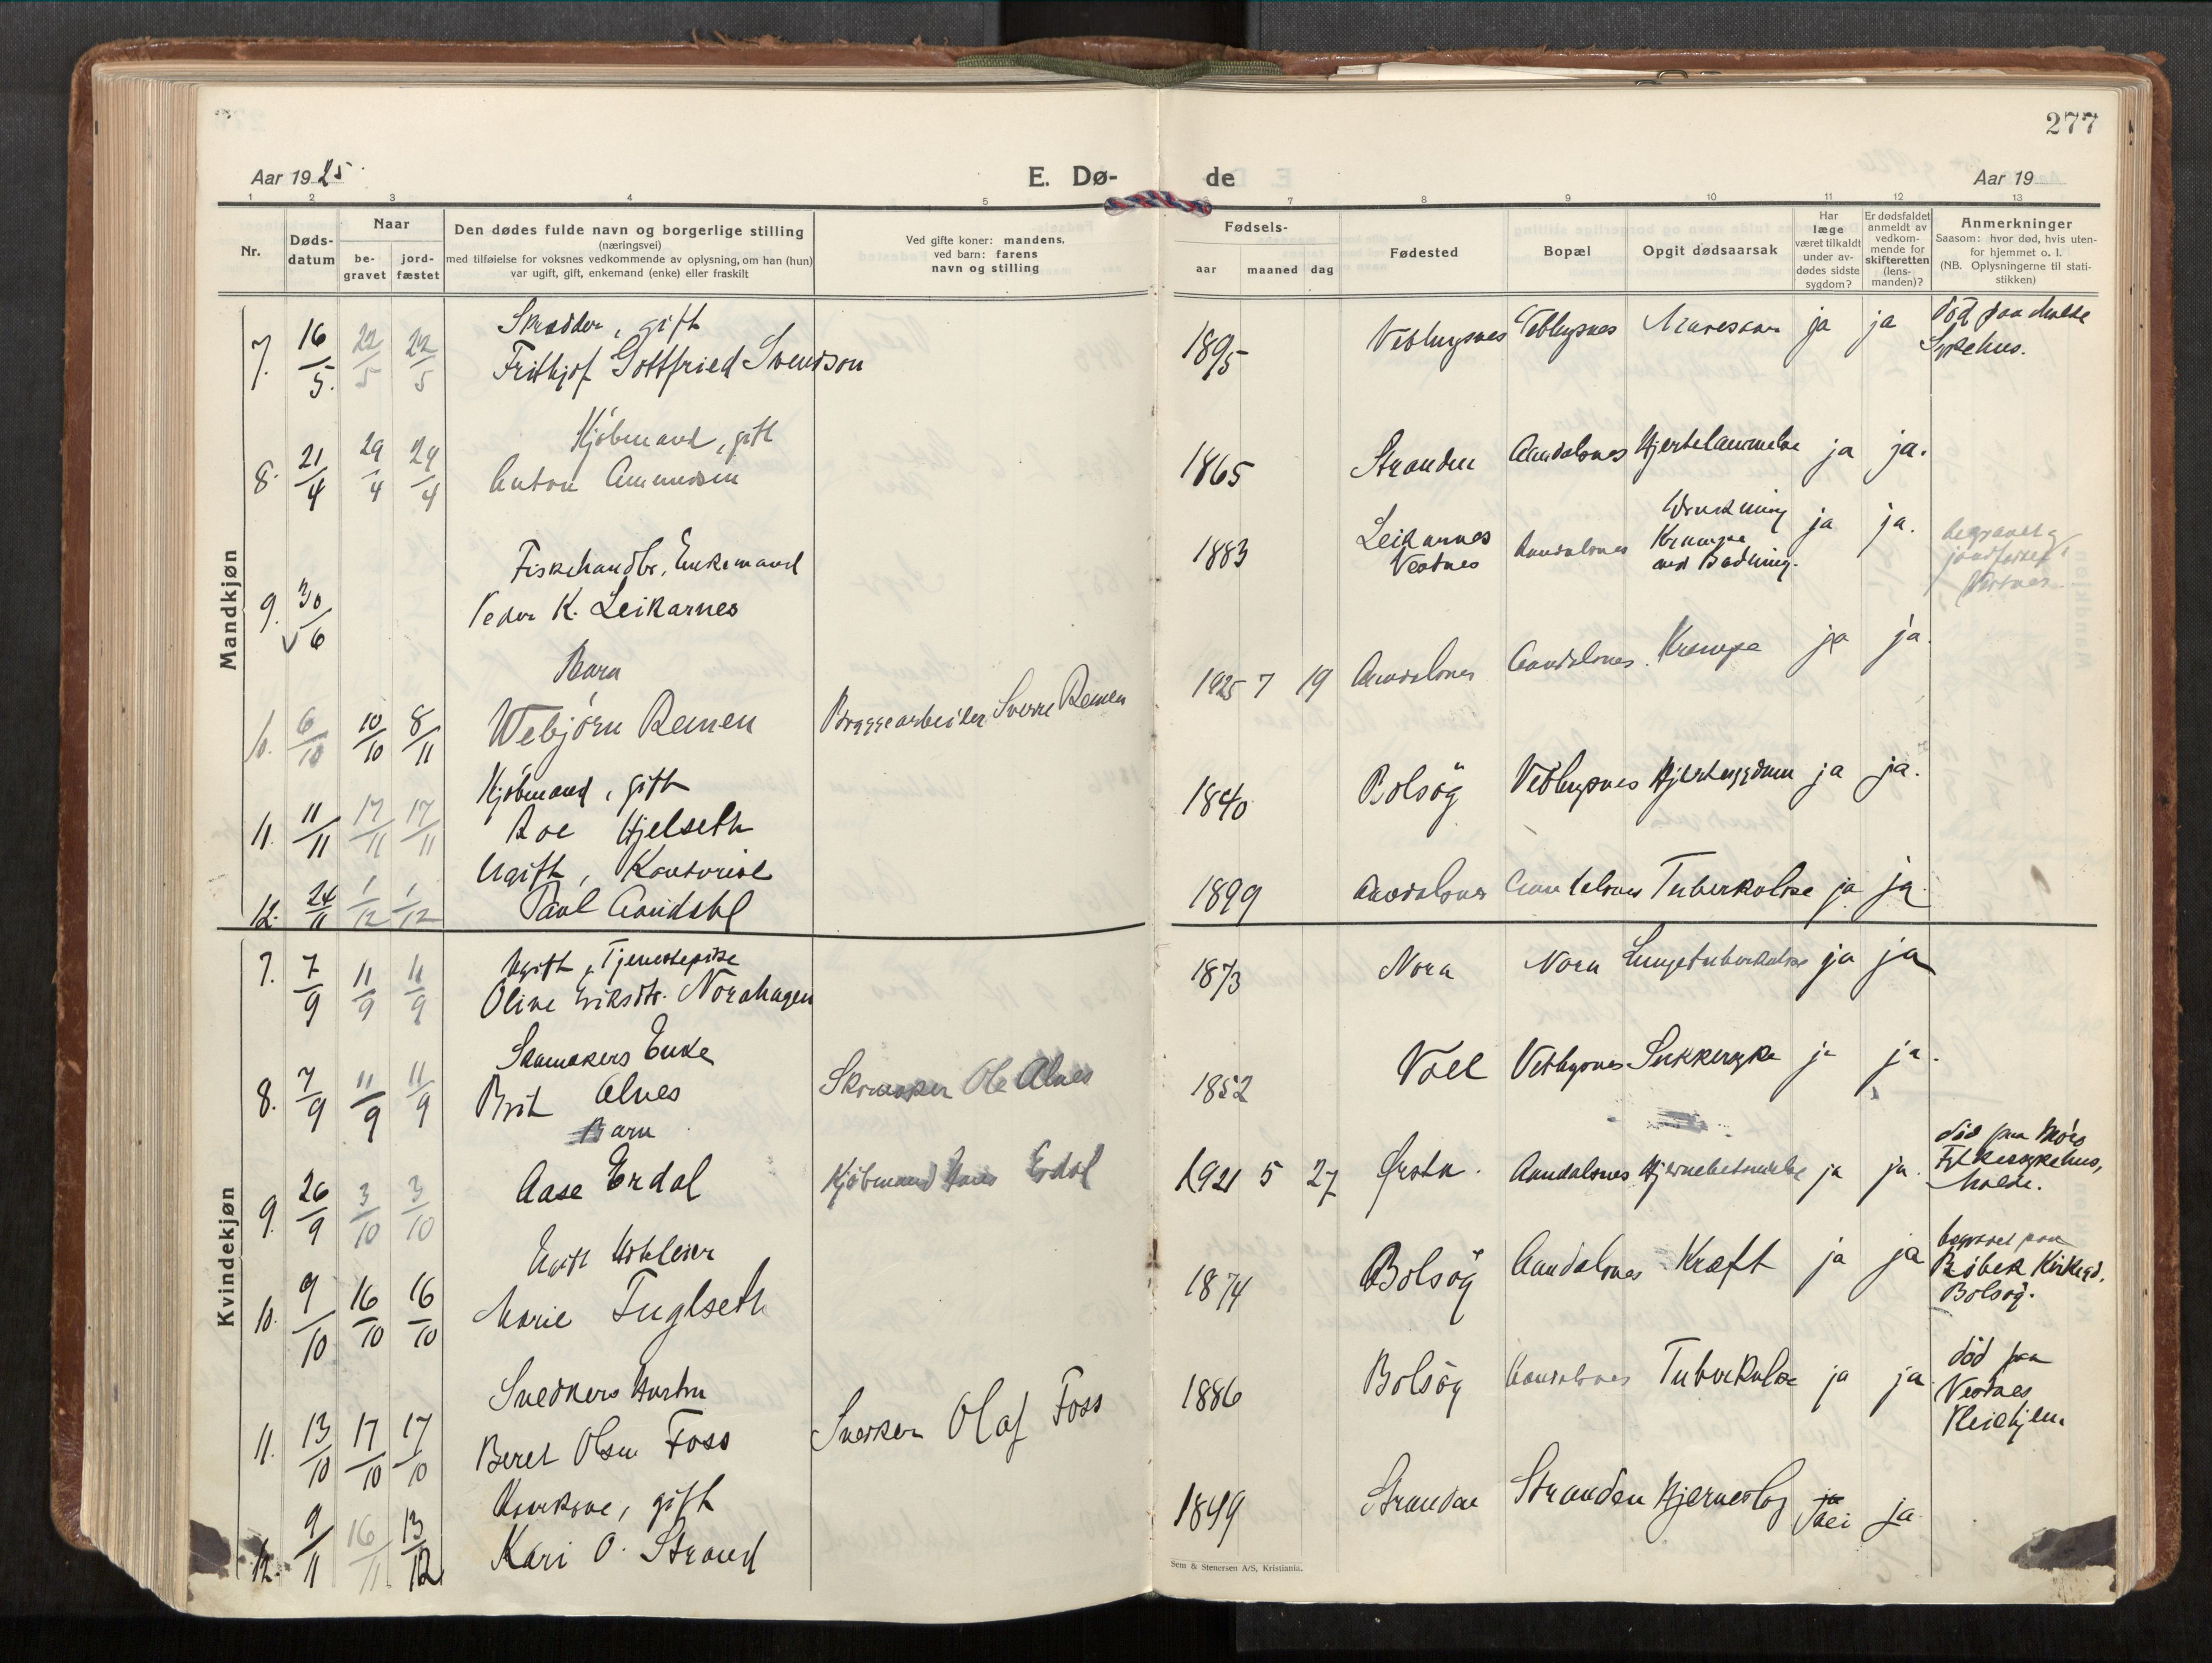 277
Aar 1925.
E. Dø-
de
Aar 19
1 2 3 4 5 6 7 8 9 10 11 12 13
Nr.
Døds-
datum
Naar
be-
gravet
jord-
fæstet
Den dødes fulde navn og borgerlige stilling
(næringsvei)
med tilføielse for voksnes vedkommende av oplysning, om han (hun)
var ugift, gift, enkemand (enke) eller fraskilt
Ved gifte koner: mandens,
ved barn: farens
navn og stilling
Fødsels-
aar maaned dag
Fødested
Bopæl
Opgit dødsaarsak
Har
læge
været tilkaldt
under av-
dødes sidste
sygdom?
Er dødsfaldet
anmeldt av
vedkom-
mende for
skifteretten
(lens-
manden)?
Anmerkninger
Saasom: hvor død, hvis uten-
for hjemmet o. l.
(NB. Oplysningerne til stati-
stikken)
Mandkjøn
Skrædder, gift
7. 16/5. 22/5 22/5 Frithjof Gottfried Svendson 1895 Veblugsnes Veblugsnes ja ja død paa Molde
Sykehus.
Kjøbmand, gift
8. 21/4 29/4 29/4 Anton Amundsen 1865 Stranden Aandalsnes Hjertelammelse ja ja.
Fiskehandler, Enkemand
9. 30/6 Peder K. Leikarnes 1883 Leikarnes
Vestnes Aandalsnes Drukning
Krampe
ved Badning. ja ja. begravet og
jordfæstet i
Vestnes
Barn
10. 6/10 10/10 8/11 Webjørn Remen Bryggearbeider Sverre Remen 1925 7 19 Aandalsnes Aandalsnes Krampe ja ja.
Kjøbmand, gift
11. 11/11 17/11 17/11 Roe Hjelseth 1840 Bolsøy Veblugsnes Hjertesygdom ja ja.
Ugift, Kontorist
12. 24/11 1/12 1/12 Paul Aandahl 1899 Aandalsnes Aandalsnes Tuberkulose ja ja
Kvindekjøn
Ugift, Tjenestepike
7. 7/9 11/9 11/9 Oline Eriksdtr. Norahagen 1873 Nora Nora Lungetuberkulose ja ja
Skomakers Enke
8. 7/9 11/9 11/9 Brit Alnes Skomaker Ole Alnes 1852 Voll Veblugsnes Sukkersyke ja ja.
Barn
9. 26/9 3/10 3/10 Aase Erdal Kjøbmand Hans Erdal 1921 5 27 Ørsta. Aandalsnes Hjernebetændelse ja ja. død paa Møre
Fylkessykehus,
Molde.
10. 9/10 16/10 16/10 Marie Fuglseth 1874 Bolsøy Aandalsnes Kræft ja ja begravet paa
Røbek Kirkegd.
Bolsøy.
Snedkers Hustru
11. 13/10 17/10 17/10 Beret Olsen Foss Snedker Olaf Foss 1886 Bolsøy Aandalsnes Tuberkulose ja ja død paa
Vestnes
Pleiehjem
gift
12. 9/11 16/11 13/12 Kari O. Strand 1849 Stranden Stranden Hjerneslag ja
Nei ja
Sem & Stenersen A/S, Kristiania.